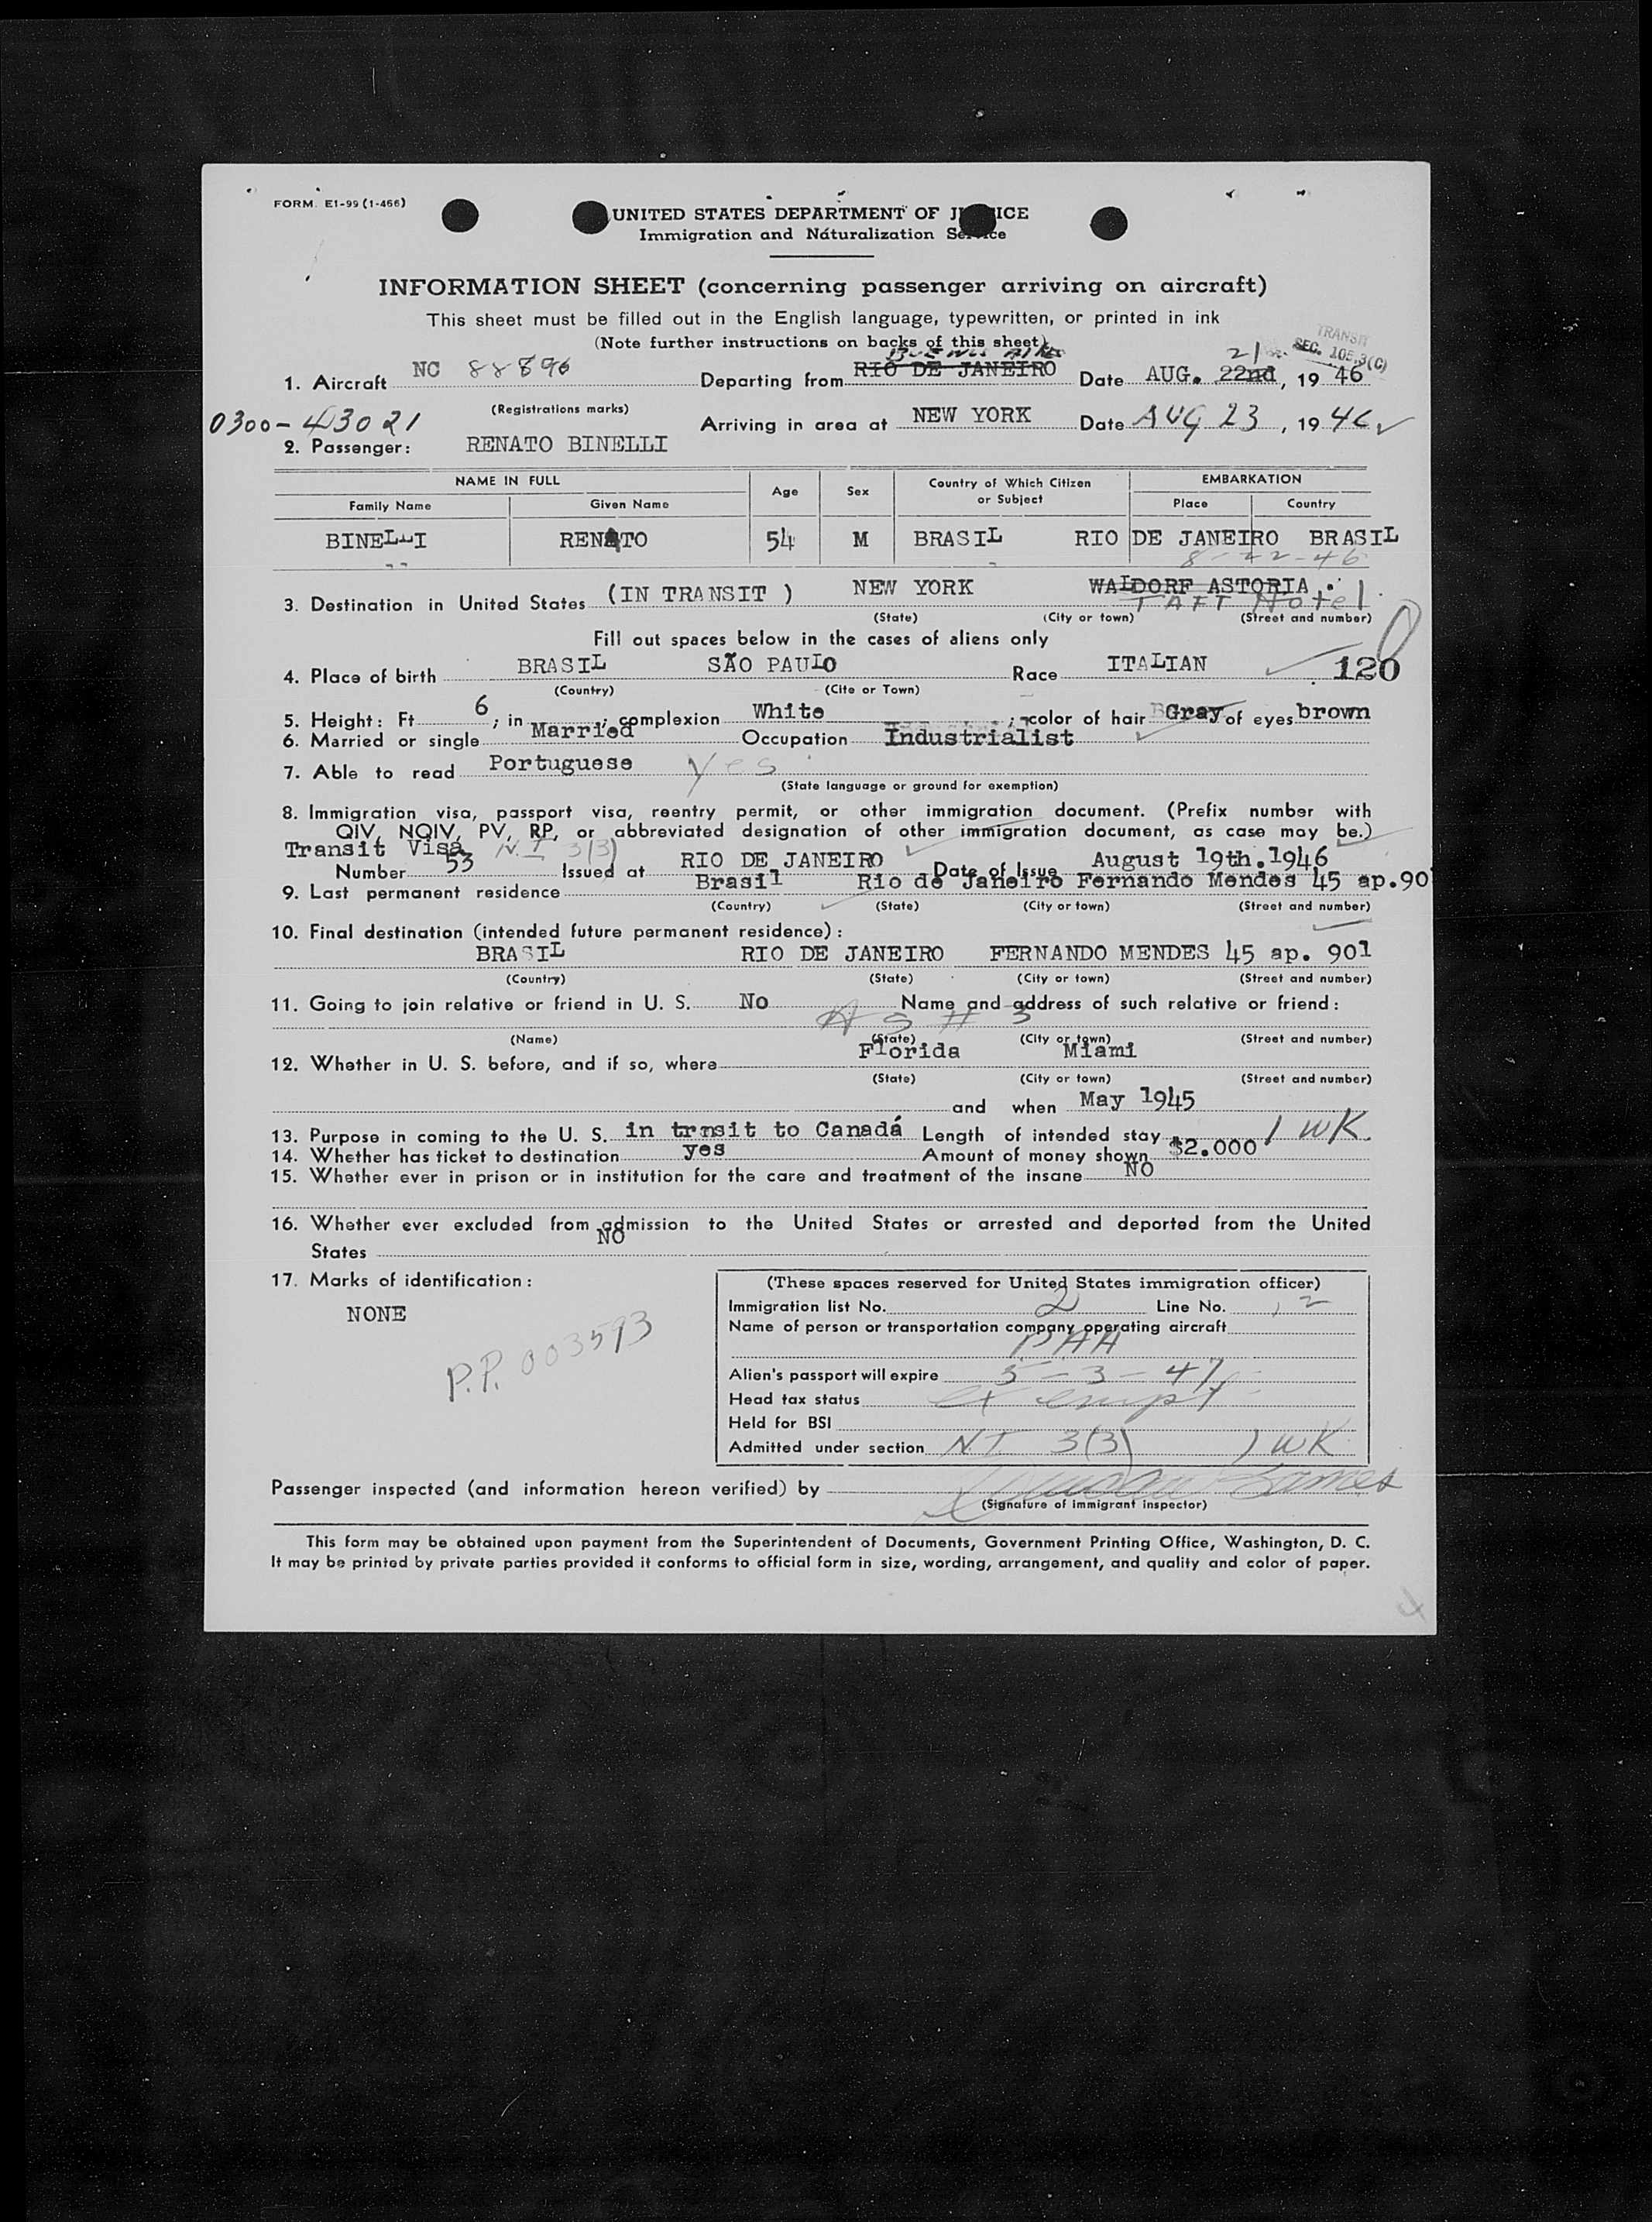 FORM. E1-99 (1-466)
UNITED STATES DEPARTMENT OF JUSTICE
Immigration and Naturalization Service
INFORMATION SHEET (concerning passenger arriving on aircraft)
This sheet must be filled out in the English language, typewritten, or printed in ink
(Note further instructions on backs of this sheet)
TRANSIT
SEC. 105.3(C)
BUENOS AIRES 21
1. Aircraft NC 88896 Departing from RIO DE JANEIRO Date AUG. 22nd, 19 46
(Registrations marks)
0300-43021 Arriving in area at NEW YORK Date AUG 23, 19 46
2. Passenger: RENATO BINELLI
NAME IN FULL Age Sex Country of Which Citizen or Subject EMBARKATION
Family Name Given Name Place Country
BINELLI RENATO 54 M BRASIL RIO DE JANEIRO BRASIL
8-22-46
3. Destination in United States (IN TRANSIT ) NEW YORK WALDORF ASTORIA
TAFT Hotel
(State) (City or town) (Street and number)
Fill out spaces below in the cases of aliens only
4. Place of birth BRASIL SÃO PAULO Race ITALIAN 120
(Country) (Cite or Town)
5. Height: Ft. 6; in ; complexion White ; color of hair Gray of eyes brown
6. Married or single Married Occupation Industrialist
7. Able to read Portuguese Yes
(State language or ground for exemption)
8. Immigration visa, passport visa, reentry permit, or other immigration document. (Prefix number with
QIV, NQIV, PV, RP, or abbreviated designation of other immigration document, as case may be.)
Transit Visa N.I 3(3)
Number 53 Issued at RIO DE JANEIRO Date of Issue August 19th.1946
9. Last permanent residence Brasil Rio de Janeiro Fernando Mendes 45 ap.90
(Country) (State) (City or town) (Street and number)
10. Final destination (intended future permanent residence):
BRASIL RIO DE JANEIRO FERNANDO MENDES 45 ap. 901
(Country) (State) (City or town) (Street and number)
11. Going to join relative or friend in U. S. No Name and address of such relative or friend:
AS # 3
(Name) (State) (City or town) (Street and number)
12. Whether in U. S. before, and if so, where Florida Miami
(State) (City or town) (Street and number)
and when May 1945
13. Purpose in coming to the U. S. in trnsit to Canadá Length of intended stay 1 WK.
14. Whether has ticket to destination yes Amount of money shown $2.000
15. Whether ever in prison or in institution for the care and treatment of the insane NO
16. Whether ever excluded from admission to the United States or arrested and deported from the United
States NO
17. Marks of identification:
NONE
P.P. 003593
(These spaces reserved for United States immigration officer)
Immigration list No. 2 Line No. 12
Name of person or transportation company operating aircraft
PAA
Alien's passport will expire 5-3-47
Head tax status exempt
Held for BSI
Admitted under section N.I. 3(3) 1 WK
Passenger inspected (and information hereon verified) by
(Signature of immigrant inspector)
This form may be obtained upon payment from the Superintendent of Documents, Government Printing Office, Washington, D. C.
It may be printed by private parties provided it conforms to official form in size, wording, arrangement, and quality and color of paper.